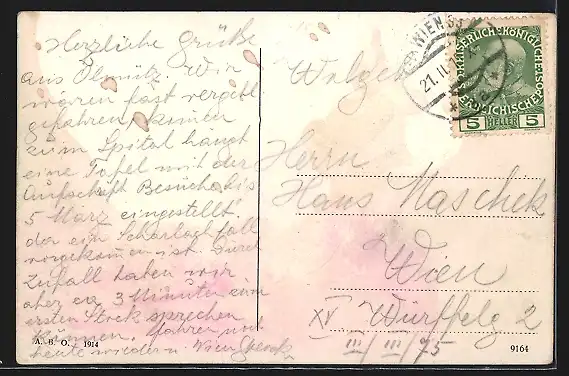 Herzliche Grüße
aus Olmütz. Wir
wären fast vergebl.
gefahren, kommen
zum Spital hängt
eine Tafel mit der
Aufschrift Besuche bis
5 März eingestellt
da ein Scharlachfall
vorgekommen ist. Durch
Zufall haben wir
aber ca 3 Minuten zum
ersten Stock sprechen
können. fahren
heute wieder n. Wien
A. B. O. 1914
WIEN
21. II.
KAISERLICHE KÖNIGLICHE
ÖSTERREICHISCHE POST
5 HELLER 5
Herrn
Hans Maschek
Wien
XV Würffelg 2
III/III/75
9164